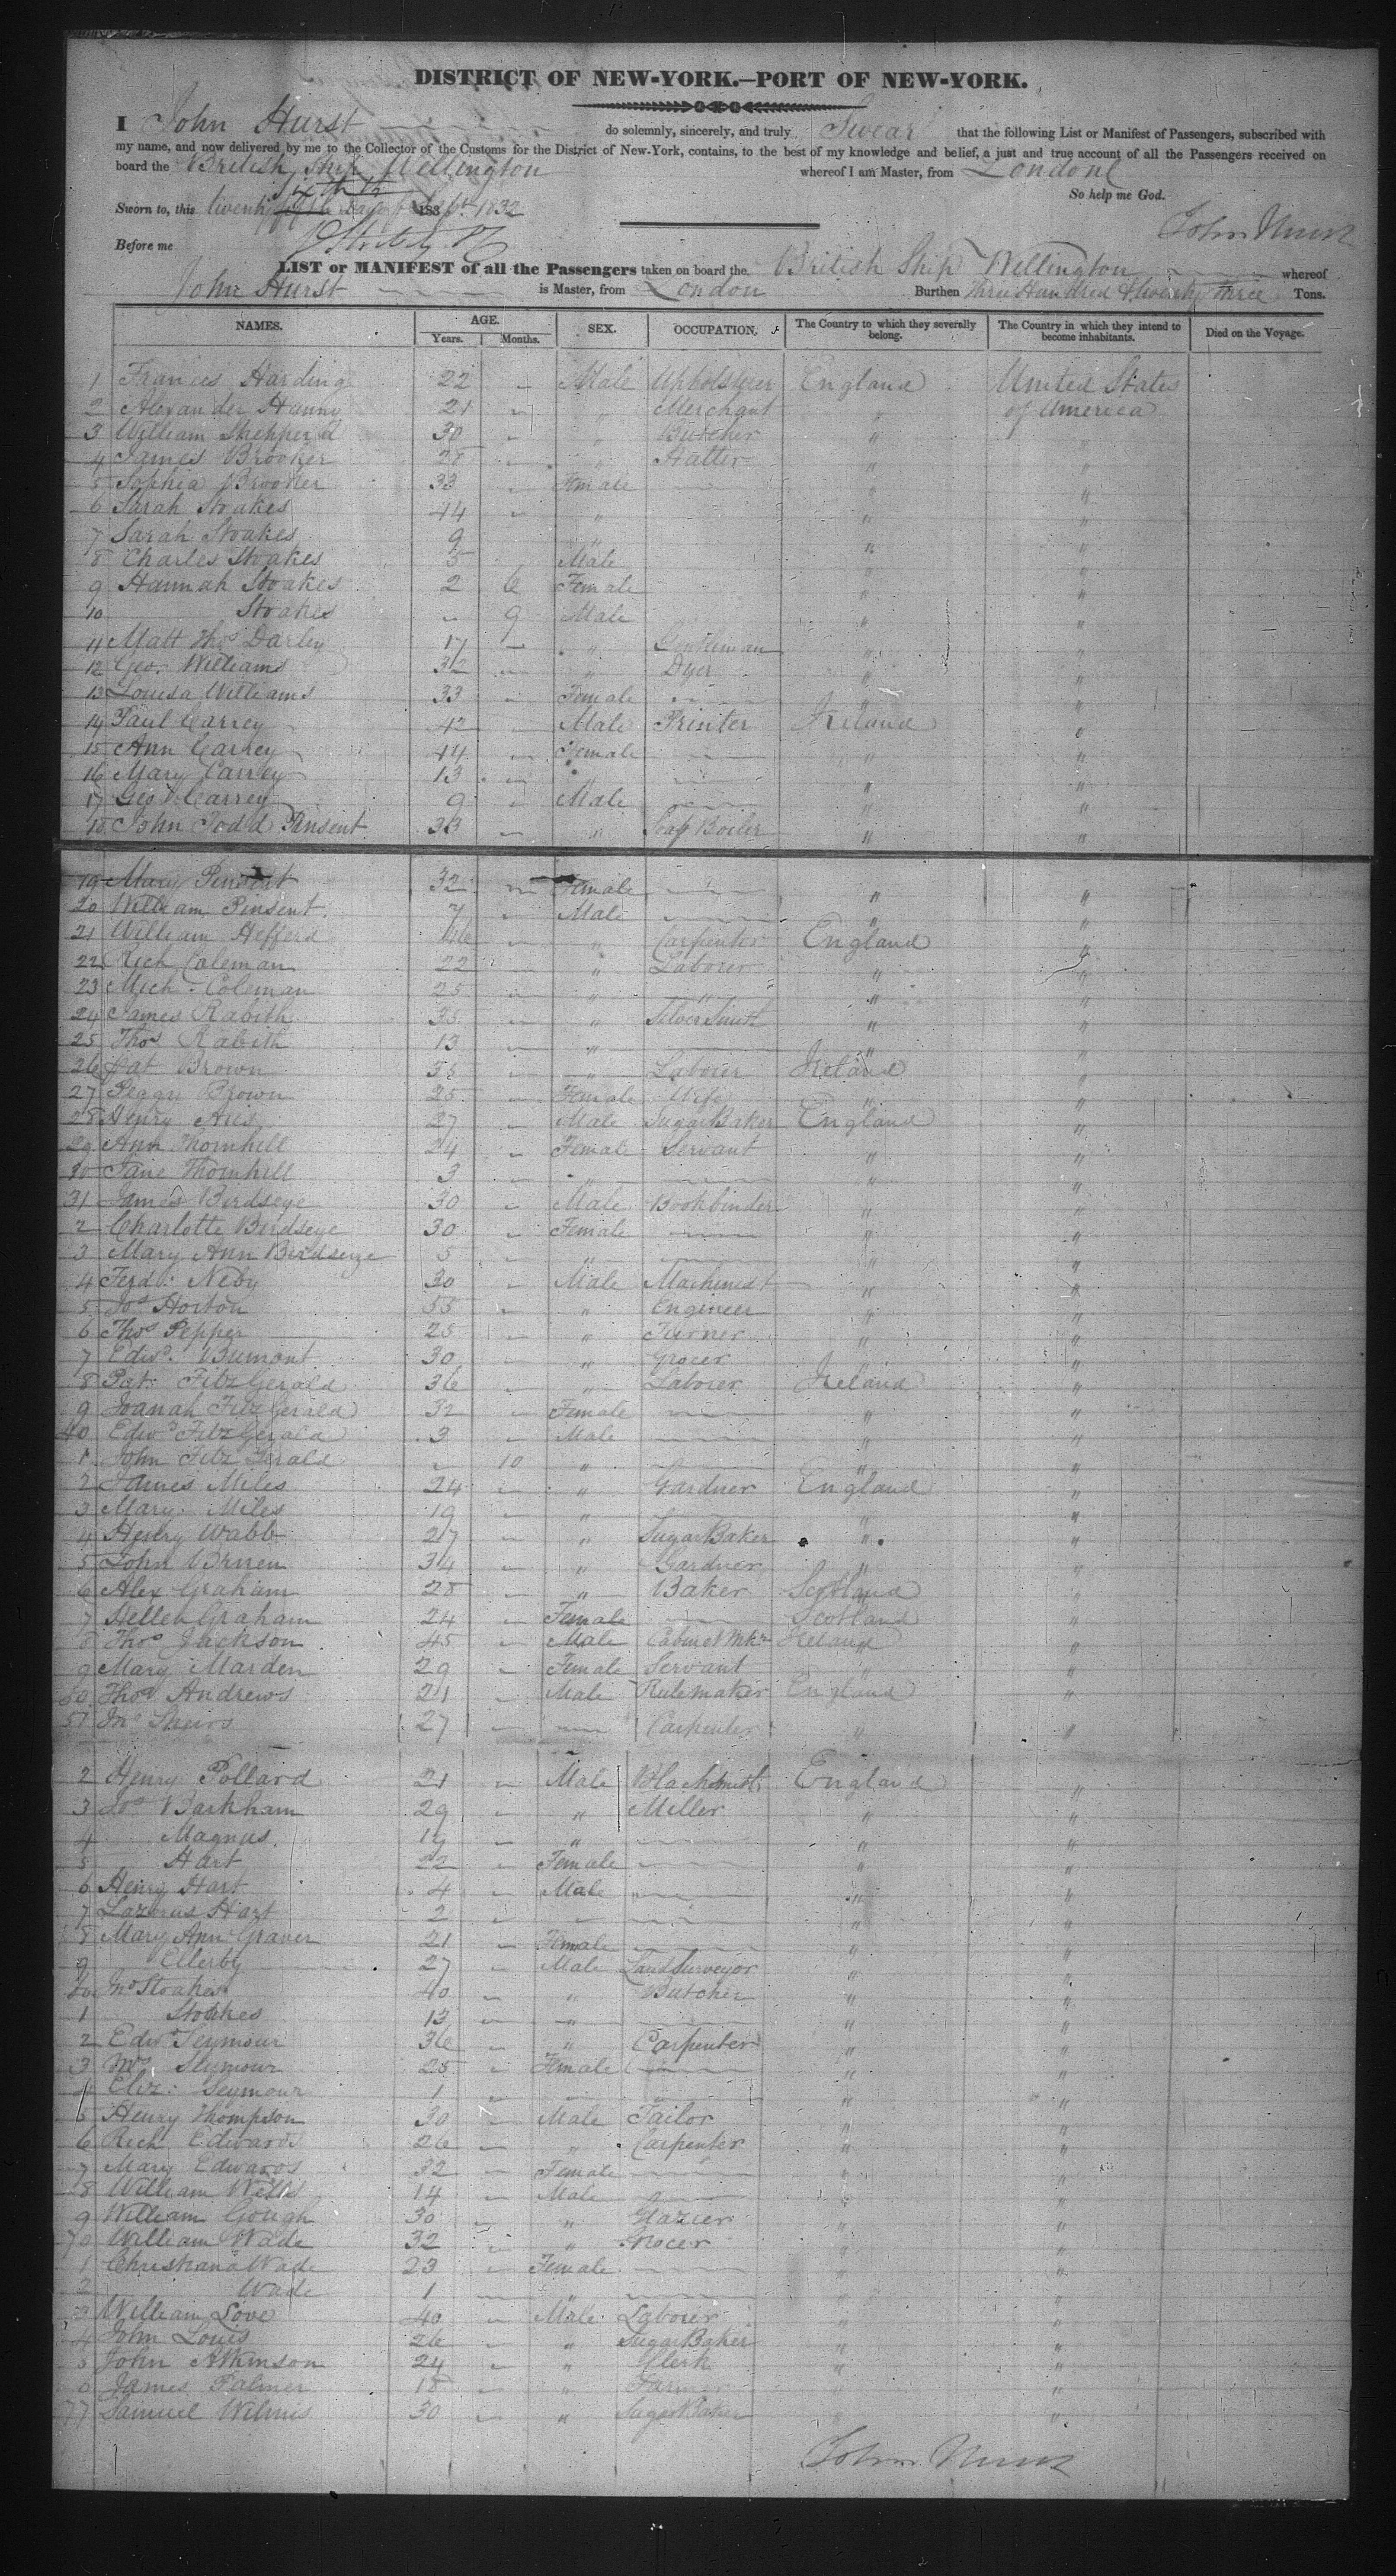 DISTRICT OF NEW-YORK.—PORT OF NEW-YORK.
I John Hurst do solemnly, sincerely, and truly Swear that the following List or Manifest of Passengers, subscribed with
my name, and now delivered by me to the Collector of the Customs for the District of New-York, contains, to the best of my knowledge and belief, a just and true account of all the Passengers received on
board the British Ship Wellington whereof I am Master, from London
So help me God.
Sworn to, this twenty sixth day of Sept 1832
John Hurst
Before me
LIST or MANIFEST of all the Passengers taken on board the British Ship Wellington whereof
John Hurst is Master, from London Burthen Three Hundred & twenty three Tons.
NAMES. AGE. SEX. OCCUPATION. The Country to which they severally belong. The Country in which they intend to become inhabitants. Died on the Voyage.
Years. Months.
1 Frances Harding 22 " Male Upholsterer England United States
2 Alexander Hanny 21 " " Merchant " of America
3 William Shepperd 30 " " Butcher " "
4 James Brooker 28 " " Hatter " "
5 Sophia Brooker 33 " Female — " "
6 Sarah Stoakes 44 " " " "
7 Sarah Stoakes 9 " " "
8 Charles Stoakes 5 Male " "
9 Hannah Stoakes 2 6 Female " "
10 Stoakes " 9 Male " "
11 Matt Thos Darley 17 — " Gentleman " "
12 Geo. Williams 32 " " Dyer " "
13 Louisa Williams 33 " Female — " "
14 Paul Carrey 42 " Male Printer Ireland "
15 Ann Carrey 44 " Female — " "
16 Mary Carrey 13 " " — " "
17 Geo V. Carrey 9 " Male — " "
18 John Todd Pinsent 33 " " Soap Boiler " "
19 Mary Pinsent 32 " Female — " "
20 William Pinsent 7 " Male — " "
21 William Hefferd 46 " " Carpenter England "
22 Rich Coleman 22 " " Laborer " "
23 Mich. Coleman 25 " " " " "
24 James Rabith 35 " " Silver Smith " "
25 Thos Rabith 13 " " — " "
26 Pat Brown 35 " " Laborer Ireland "
27 Peggy Brown 25 " Female Wife " "
28 Henry Aris 27 " Male Sugar Baker England "
29 Ann Thornhill 24 " Female Servant " "
30 Jane Thornhill 3 " " — " "
31 James Birdseye 30 " Male Bookbinder " "
2 Charlotte Birdseye 30 " Female — " "
3 Mary Ann Birdseye 5 " " — " "
4 Ferd: Neby 30 " Male Machinest " "
5 Jos Horton 55 " " Engineer " "
6 Thos Pepper 25 " " Turner " "
7 Edwd. Bumont 30 " " Grocer " "
8 Pat. FitzGerald 36 " " Laborer Ireland "
9 Joanah FitzGerald 32 " Female — " "
40 Edwd FitzGerald 3 " Male — " "
1 John FitzGerald " 10 " — " "
2 James Miles 24 " " Gardner England "
3 Mary Miles 19 " " — " "
4 Henry Wabb 27 " " Sugar Baker " "
5 John Brnen 34 " " Gardner " "
6 Alex Graham 28 " " Baker Scotland "
7 Hellen Graham 24 " Female — Scotland "
8 Thos Jackson 45 " Male Cabinet Mkr Ireland "
9 Mary Marden 29 " Female Servant " "
50 Thos Andrews 21 " Male Rulemaker England "
51 Jno 27 " — Carpenter " "
2 Henry Pollard 21 " Male Blacksmith England "
3 Jos Barkham 29 " " Miller " "
4 Magnus 19 " " — " "
5 Hart 22 " Female — " "
6 Henry Hart 4 " Male " " "
7 Lazarus Hart 2 " " — " "
8 Mary Ann Graver 21 " Female — " "
9 Ellerby 27 " Male Land Surveyor " "
60 Jno Stoakes 40 " " Butcher " "
1 Stoakes 13 " " — " "
2 Edwd Seymour 36 " " Carpenter " "
3 Mrs Seymour 25 " Female — " "
4 Eliz: Seymour 1 " " " " "
5 Henry Thompson 30 " Male Tailor " "
6 Rich. Edwards 26 " " Carpenter " "
7 Mary Edwards 32 " Female — " "
8 William Wells 14 " Male — " "
9 William Gough 30 " " Glazier " "
70 William Wade 32 " " Grocer " "
1 Christiana Wade 23 " Female — " "
2 Wade 1 " " — " "
3 William Love 40 " Male Laborer " "
4 John Louis 26 " " Sugar Baker " "
5 John Atkinson 24 " " Clerk " "
6 James Palmer 18 " " Farmer " "
77 Samuel Wilmis 30 " " Sugar Baker " "
John Hurst